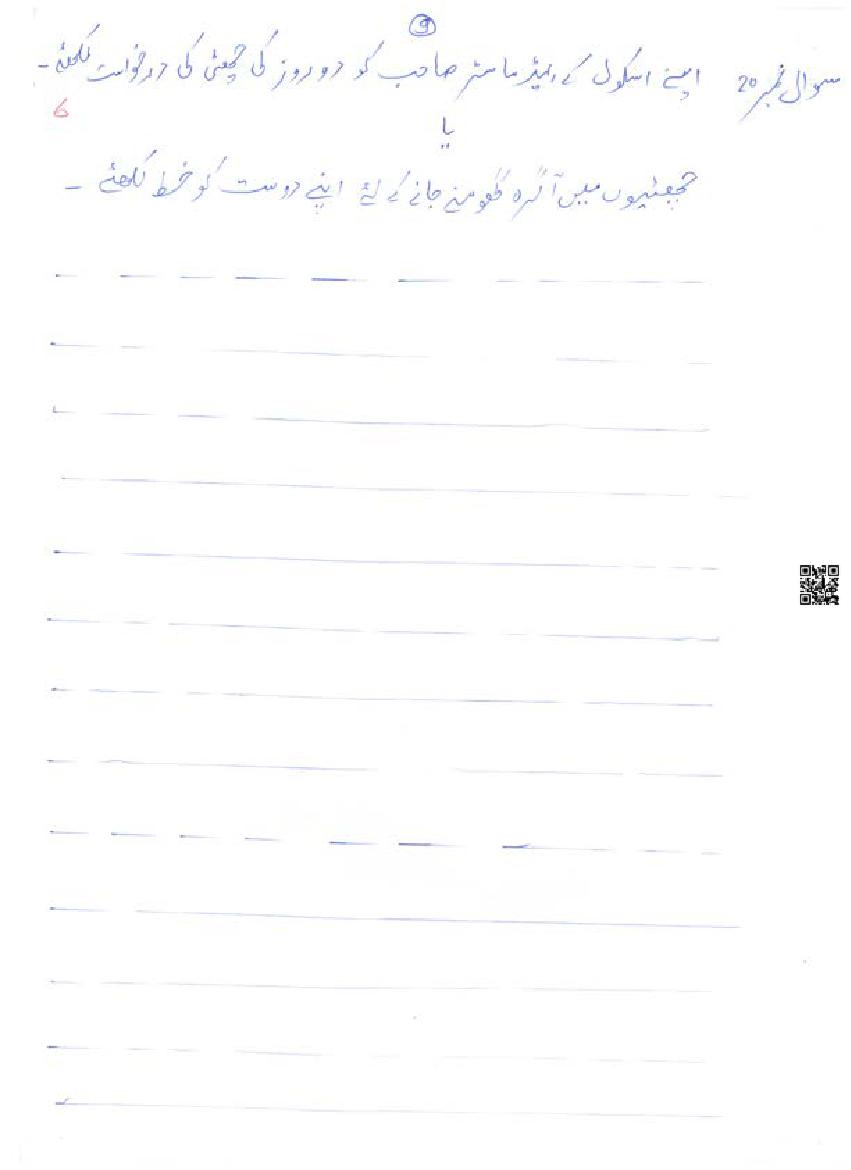 9
سوال نمبر 20 اپنے اسکول کے ہیڈ ماسٹر صاحب کو دو روز کی چھٹی کی درخواست لکھئے۔
6
یا
چھٹیوں میں آگرہ گھومنے جانے کے لئے اپنے دوست کو خط لکھئے ۔